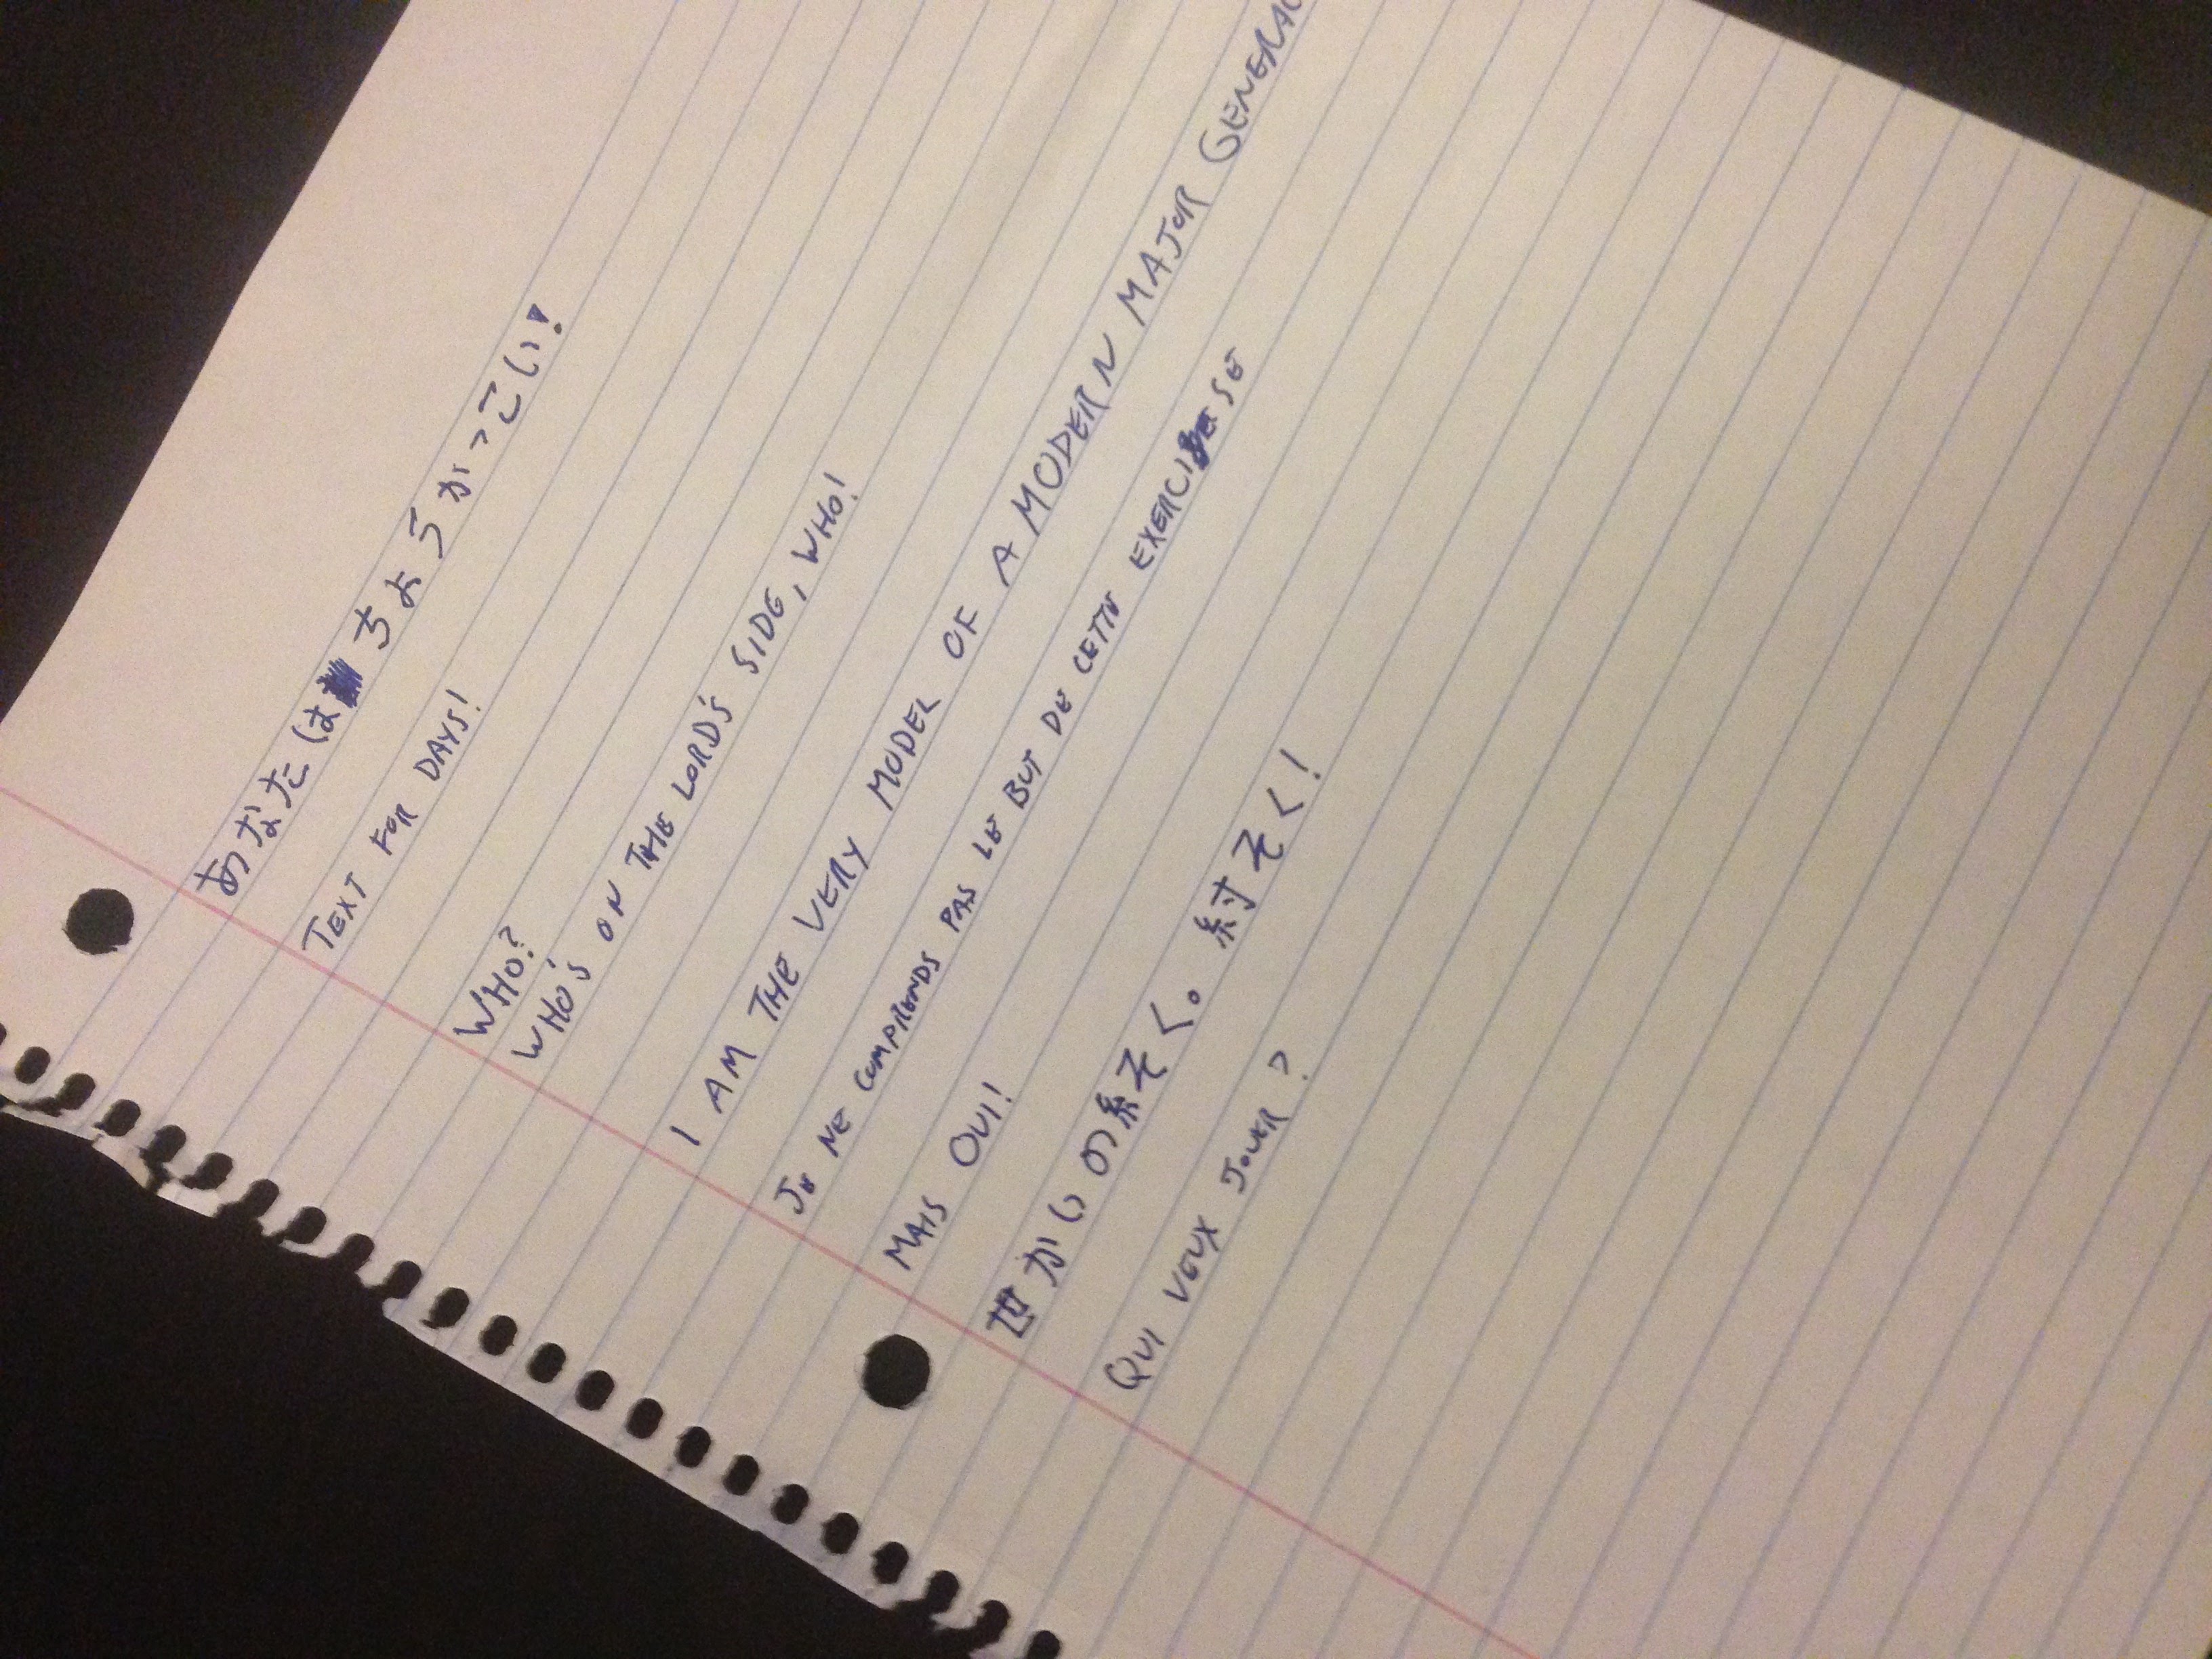 あなたは ちょうかっこい!
TEXT FOR DAYS!
WHO?
WHO'S ON THE LORD'S SIDE, WHO!
I AM THE VERY MODEL OF A MODERN MAJOR GENERAL
JE NE COMPRENDS PAS LE BUT DE CETTE EXERCISE
MAIS OUI!
世かいの終そく。 紂そく!
QUI VEUX JOUER?